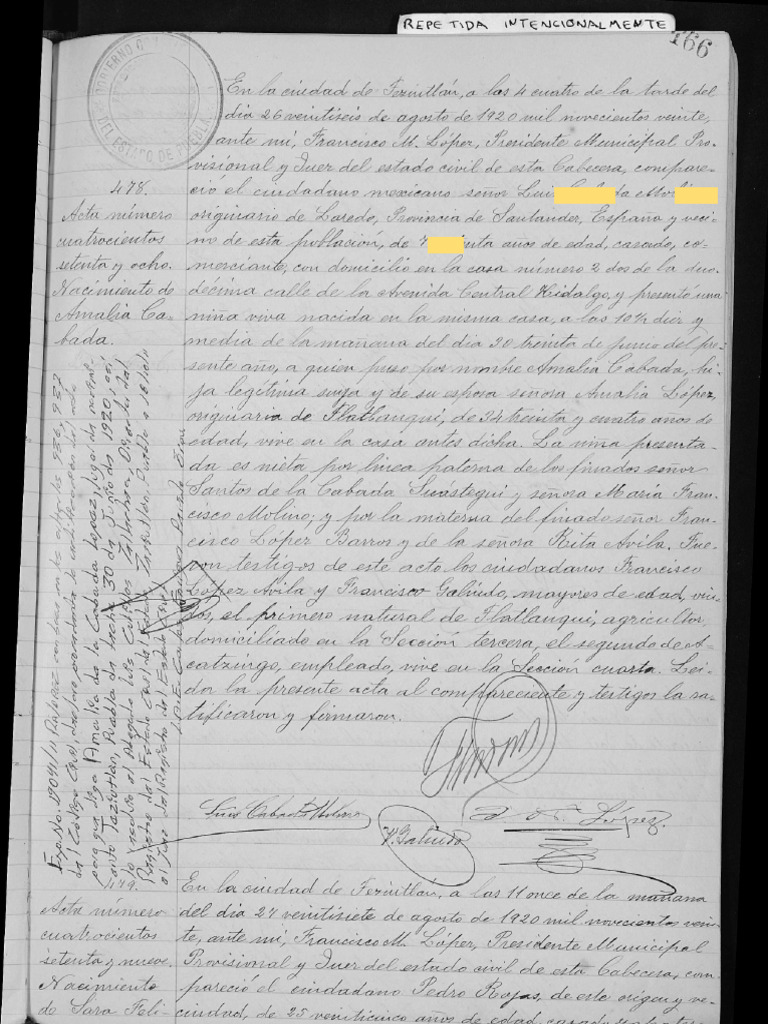 REPETIDA INTENCIONALMENTE
166
GOBIERNO
DEL ESTADO DE PUEBLA
478.
Acta número
cuatrocientos
setenta y ocho.
Nacimiento de
Amalia Ca-
bada.
En la ciudad de Teziutlán, a las 4 cuatro de la tarde del
día 26 veintiseis de agosto de 1920 mil novecientos veinte,
ante mí, Francisco M. López, Presidente Municipal Pro-
visional y Juez del estado civil de esta Cabecera, compare-
ció el ciudadano mexicano señor
originario de Laredo, Provincia de Santander, España y veci-
no de esta población, de años de edad, casado, co-
merciante, con domicilio en la casa número 2 dos de la duo-
décima calle de la Avenida Central Hidalgo, y presentó una
niña viva nacida en la misma casa, a las 10½ diez y
media de la mañana del día 30 treinta de junio del pre-
sente año, a quien puso por nombre Amalia Cabada, hi-
ja legítima suya y de su esposa señora Amalia López,
originaria de Tlatlauqui, de 34 treinta y cuatro años de
edad, vive en la casa antes dicha. La niña presenta-
da es nieta por línea paterna de los finados señor
Santos de la Cabada Suástegui y señora María Fran-
cisco Molino; y por la materna del finado señor Fran-
cisco López Barros y de la señora Rita Avila. Fue-
ron testigos de este acto los ciudadanos Francisco
López Avila y Francisco Galindo, mayores de edad, viu-
dos, el primero natural de Tlatlauqui, agricultor,
domiciliado en la Sección tercera, el segundo de A-
catzingo, empleado, vive en la Sección cuarta. Leí-
da la presente acta al compareciente y testigos la ra-
tificaron y firmaron.
Luis Cabada Molino
F. Galindo
López.
Exp. No. 1909/
para que diga Amalia de la Cabada López,
Teziutlán, Puebla 30 de Junio de 1920,
479.
Acta número
cuatrocientos
setenta y nueve.
Nacimiento
de Sara Feli-
En la ciudad de Teziutlán, a las 11 once de la mañana
del día 27 veintisiete de agosto de 1920 mil novecientos vein-
te, ante mí, Francisco M. López, Presidente Municipal
Provisional y Juez del estado civil de esta Cabecera, com-
pareció el ciudadano Pedro Rojas, de este origen y ve-
cindad, de 25 veinticinco años de edad, casado,